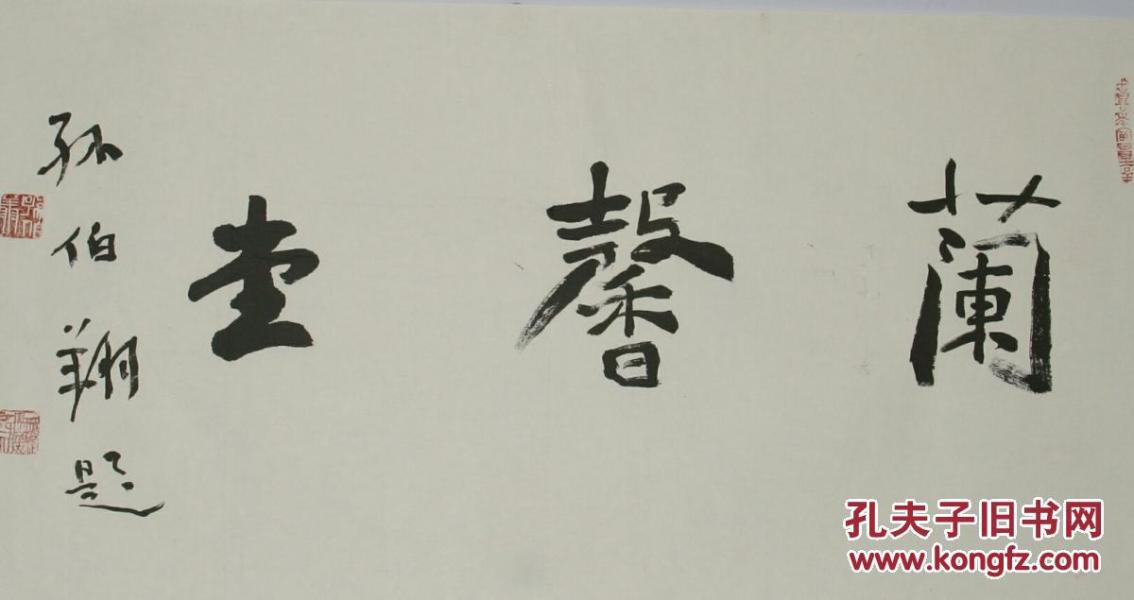 蘭馨堂
孙伯翔题
孔夫子旧书网
www.kongfz.com